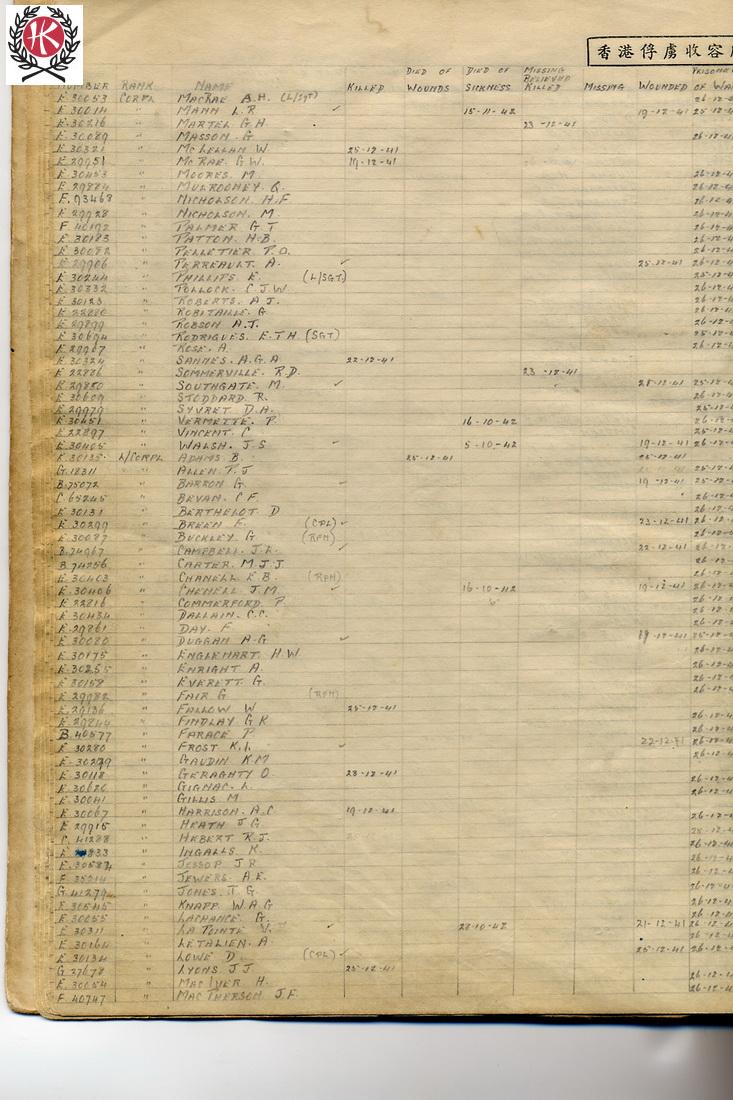 HK
香港俘虜收容
NUMBER RANK NAME KILLED DIED OF WOUNDS DIED OF SICKNESS MISSING BELIEVED KILLED MISSING WOUNDED PRISONE OF WA
E 30053 CORPL MACRAE A.H. (L/SGT) 26-12-4
E 30014 " MANN L.R ✓ 15-11-42 19-12-41 25-12-4
E 30216 " MARTEL G H 23-12-41
E 30089 " MASSON. G 26-12-4
E 30321 " MCLELLAN W. 25-12-41
E 29951 " MCRAE. G W. 19-12-41
E 30453 " MOORES. M 26-12-4
E 29884 " MULROONEY. Q. 26-12-4
F. 93468 " NICHOLSON. H.F 26-12-4
E 29928 " NICHOLSON. M 26-12-4
F 40192 " PALMER G T 26-12-4
E 30183 " PATTON. H.B. 26-12-4
E 30082 " PELLETIER. P.O. 26-12-4
E 29906 " PERREAULT. A. ✓ 25-12-41 26-12-4
E 30244 " PHILLIPS E. (L/SGT) 25-12-4
E 30332 " POLLOCK. C J.W. 26-12-4
E 30123 " ROBERTS. A J. 26-12-4
E 22880 " ROBITAILLE. G 26-12-4
E 29899 " ROBSON A.J. 26-12-4
E 30694 " RODRIGUES. E.T.H (SGT) 25-12-4
E 29967 " ROSE. A. 26-12-4
E 30324 " SANNES. A.G.A 22-12-41
E 22886 " SOMMERVILLE. R.D. 23-12-41
E 29850 " SOUTHGATE. M. ✓ 25-12-4
E 30609 " STODDARD. R. 26-12-4
E 29979 " SYVRET D.A. 25-12-4
E 30451 " VERMETTE. P. 16-10-42 26-12-4
E 22897 " VINCENT. C 25-12-4
E 30405 " WALSH. J.S ✓ 5-10-42 19-12-41 26-12-4
E 30135 L/CORPL ADAMS B. 25-12-41 25-12-41
G. 18311 " ALLEN. P.J 25-12-4
B. 75072 " BARRON G. ✓ 19-12-41 25-12-4
C 65245 " BEVAN. C F. 26-12-4
E 30131 " BERTHELOT. D 26-12-4
E 30299 " BREEN F. (CPL) ✓ 23-12-41 26-12-4
E 30087 " BUCKLEY. G (RFM) 26-12-4
B. 74967 " CAMPBELL. J.L. ✓ 22-12-41 26-12-4
B 74256 " CARTER. M.J.J 26-12-4
E 30403 " CHANELL E B. (RFM) 26-12-4
E. 30406 " CHENELL J.M. ✓ 16-10-42 19-12-41 26-12-4
E 22816 " COMMERFORD. P. 26-12-4
E 30434 " DALLAIN. C.C. 26-12-4
E. 29861 " DAY. F. 26-12-4
E 30080 " DUGGAN A.G ✓ 19-12-41 25-12-4
E 30175 " ENGLEHART. H.W. 26-12-4
E 30255 " ENRIGHT A. 26-12-4
E 30158 " EVERETT. G. 26-12-4
E 29982 " FAIR G (RFM) 26-12-4
E. 29136 " FALLOW W 25-12-41
E 29844 " FINDLAY G K 26-12-4
B. 40577 " FARACE P. 26-12-4
E 30280 " FROST K.I. ✓ 22-12-41 26-12-4
E 30279 " GAUDIN K M 26-12-4
E 30118 " GERAGHTY O. 23-12-41
E 30620 " GIGNAC. L. 26-12-4
E 30041 " GILLIS M 26-12-4
E 30067 " HARRISON. A.C 19-12-41
E 29915 " HEATH J G 26-12-4
C. 41288 " HEBERT R.J. 26-12-4
833 " INGALLS. K. 26-12-4
E. 30584 " JESSOP J R 26-12-4
F 35214 " JEWERS. A.E. 26-12-4
G. 41279 " JONES. T G. 26-12-4
E 30545 " KNAPP W.A.G 26-12-4
E 30055 " LACHANCE. G. 26-12-4
E 30311 " LA POINTE V. ✓ 28-10-42 21-12-41 26-12-4
E 30164 " LETALIEN. A 26-12-4
E 30134 " LOWE D. (CPL) ✓ 25-12-41 26-12-4
G 27678 " LYONS. J J 25-12-41
E. 30054 " MACIVER H. 26-12-4
F. 40747 " MACPHERSON J.F. 26-12-4